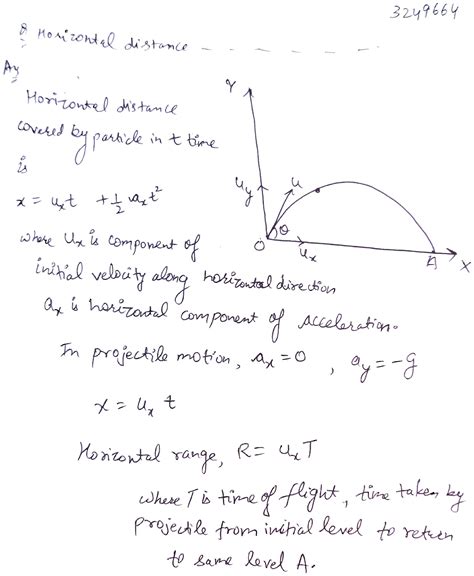 3249664
Q Horizontal distance _ _ _ _ _ _
Ans
Horizontal distance
covered by particle in t time
is
x = uₓt + ½ aₓt²
where uₓ is component of
initial velocity along horizontal direction
aₓ is horizontal component of acceleration.
In projectile motion, aₓ = 0 , a_y = -g
x = uₓ t
Horizontal range, R = uₓT
where T is time of flight, time taken by
projectile from initial level to return
to same level A.
Y
u_y
u
θ
O
uₓ
A
X